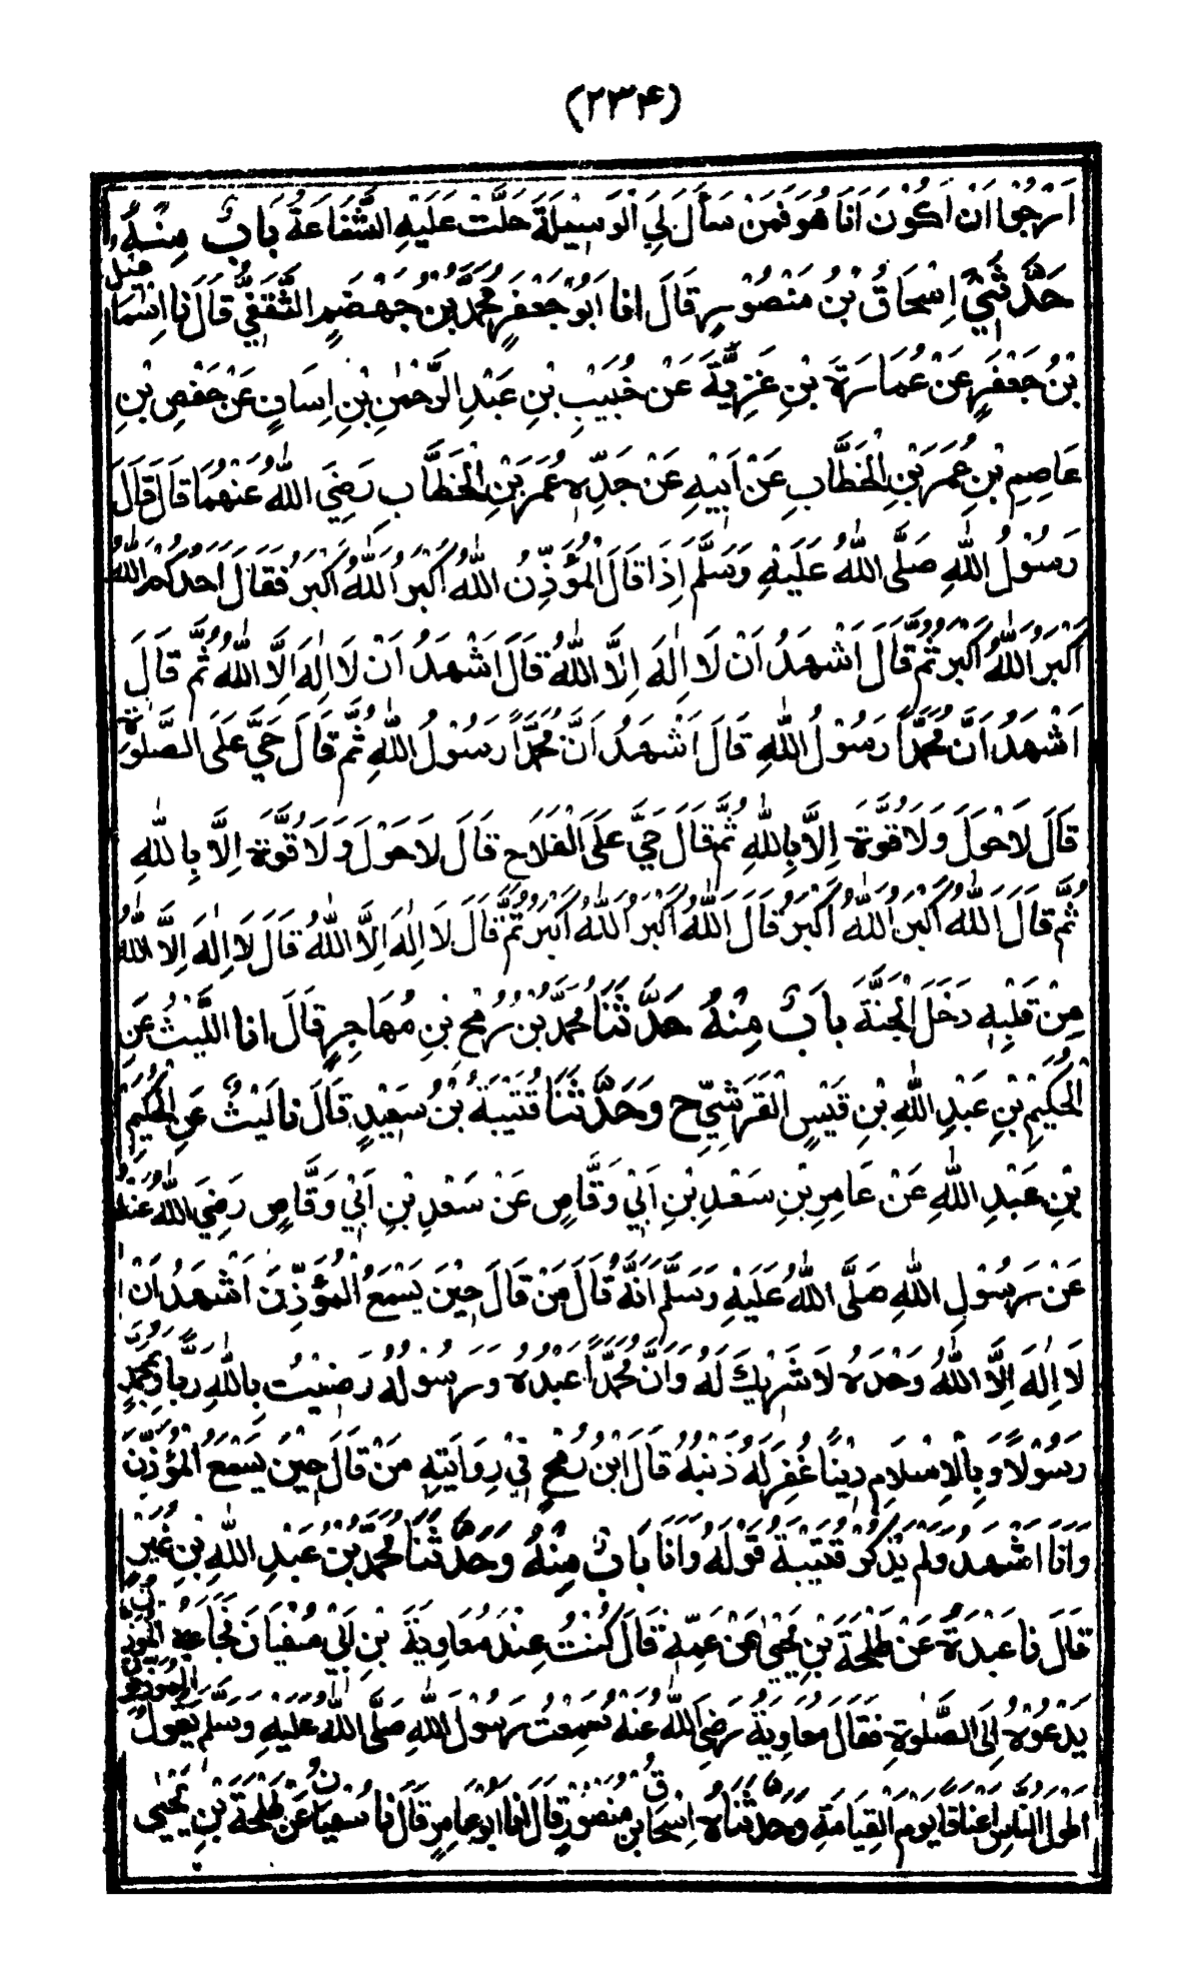 (۲۳۴)
اَرْجُوْا اَنْ اَكُوْنَ اَنَا هُوَ فَمَنْ سَأَلَ لِيَ الْوَسِيْلَةَ حَلَّتْ عَلَيْهِ الشَّفَاعَةُ بَابٌ مِنْهُ
حَدَّثَنِيْ اِسْحَاقُ بْنُ مَنْصُوْرٍ قَالَ انا اَبُوْ جَعْفَرٍ مُحَمَّدُ بْنُ جَهْضَمٍ الثَّقَفِيُّ قَالَ نا اِسْمَاعِيْلُ
بْنُ جَعْفَرٍ عَنْ عُمَارَةَ بْنِ غَزِيَّةَ عَنْ خُبَيْبِ بْنِ عَبْدِ الرَّحْمٰنِ بْنِ اِسَافٍ عَنْ حَفْصِ بْنِ
عَاصِمِ بْنِ عُمَرَ بْنِ الْخَطَّابِ عَنْ اَبِيْهِ عَنْ جَدِّهٖ عُمَرَ بْنِ الْخَطَّابِ رَضِيَ اللّٰهُ عَنْهُمَا قَالَ قَالَ
رَسُوْلُ اللّٰهِ صَلَّى اللّٰهُ عَلَيْهِ وَسَلَّمَ اِذَا قَالَ الْمُؤَذِّنُ اللّٰهُ اَكْبَرُ اللّٰهُ اَكْبَرُ فَقَالَ اَحَدُكُمْ اَللّٰهُ
اَكْبَرُ اللّٰهُ اَكْبَرُ ثُمَّ قَالَ اَشْهَدُ اَنْ لَا اِلٰهَ اِلَّا اللّٰهُ قَالَ اَشْهَدُ اَنْ لَا اِلٰهَ اِلَّا اللّٰهُ ثُمَّ قَالَ
اَشْهَدُ اَنَّ مُحَمَّدًا رَسُوْلُ اللّٰهِ قَالَ اَشْهَدُ اَنَّ مُحَمَّدًا رَسُوْلُ اللّٰهِ ثُمَّ قَالَ حَيَّ عَلَى الصَّلٰوةِ
قَالَ لَا حَوْلَ وَلَا قُوَّةَ اِلَّا بِاللّٰهِ ثُمَّ قَالَ حَيَّ عَلَى الْفَلَاحِ قَالَ لَا حَوْلَ وَلَا قُوَّةَ اِلَّا بِاللّٰهِ
ثُمَّ قَالَ اَللّٰهُ اَكْبَرُ اللّٰهُ اَكْبَرُ قَالَ اَللّٰهُ اَكْبَرُ اللّٰهُ اَكْبَرُ ثُمَّ قَالَ لَا اِلٰهَ اِلَّا اللّٰهُ قَالَ لَا اِلٰهَ اِلَّا اللّٰهُ
مِنْ قَلْبِهٖ دَخَلَ الْجَنَّةَ بَابٌ مِنْهُ حَدَّثَنَا مُحَمَّدُ بْنُ رُمْحِ بْنِ مُهَاجِرٍ قَالَ انا اللَّيْثُ عَنِ
الْحُكَيْمِ بْنِ عَبْدِ اللّٰهِ بْنِ قَيْسٍ الْقُرَشِيِّ ح وَحَدَّثَنَا قُتَيْبَةُ بْنُ سَعِيْدٍ قَالَ نا لَيْثٌ عَنِ الْحُكَيْمِ
بْنِ عَبْدِ اللّٰهِ عَنْ عَامِرِ بْنِ سَعْدِ بْنِ اَبِيْ وَقَّاصٍ عَنْ سَعْدِ بْنِ اَبِيْ وَقَّاصٍ رَضِيَ اللّٰهُ عَنْهُ
عَنْ رَسُوْلِ اللّٰهِ صَلَّى اللّٰهُ عَلَيْهِ وَسَلَّمَ اَنَّهٗ قَالَ مَنْ قَالَ حِيْنَ يَسْمَعُ الْمُؤَذِّنَ اَشْهَدُ اَنْ
لَا اِلٰهَ اِلَّا اللّٰهُ وَحْدَهٗ لَا شَرِيْكَ لَهٗ وَاَنَّ مُحَمَّدًا عَبْدُهٗ وَرَسُوْلُهٗ رَضِيْتُ بِاللّٰهِ رَبًّا وَبِمُحَمَّدٍ
رَسُوْلًا وَبِالْاِسْلَامِ دِيْنًا غُفِرَ لَهٗ ذَنْبُهٗ قَالَ ابْنُ رُمْحٍ فِيْ رِوَايَتِهٖ مَنْ قَالَ حِيْنَ يَسْمَعُ الْمُؤَذِّنَ
وَاَنَا اَشْهَدُ وَلَمْ يَذْكُرْ قُتَيْبَةُ قَوْلَهٗ وَاَنَا بَابٌ مِنْهُ وَحَدَّثَنَا مُحَمَّدُ بْنُ عَبْدِ اللّٰهِ بْنِ نُمَيْرٍ
قَالَ نا عَبْدَةُ عَنْ طَلْحَةَ بْنِ يَحْيٰى عَنْ عَمِّهٖ قَالَ كُنْتُ عِنْدَ مُعَاوِيَةَ بْنِ اَبِيْ سُفْيَانَ فَجَاءَهُ الْمُؤَذِّنُ
يَدْعُوْهُ اِلَى الصَّلٰوةِ فَقَالَ مُعَاوِيَةُ رَضِيَ اللّٰهُ عَنْهُ سَمِعْتُ رَسُوْلَ اللّٰهِ صَلَّى اللّٰهُ عَلَيْهِ وَسَلَّمَ يَقُوْلُ الْمُؤَذِّنُوْنَ
اَطْوَلُ النَّاسِ اَعْنَاقًا يَوْمَ الْقِيَامَةِ وَحَدَّثَنَاهُ اِسْحَاقُ بْنُ مَنْصُوْرٍ قَالَ انا اَبُوْ عَامِرٍ قَالَ نا سُفْيَانُ عَنْ طَلْحَةَ بْنِ يَحْيٰى